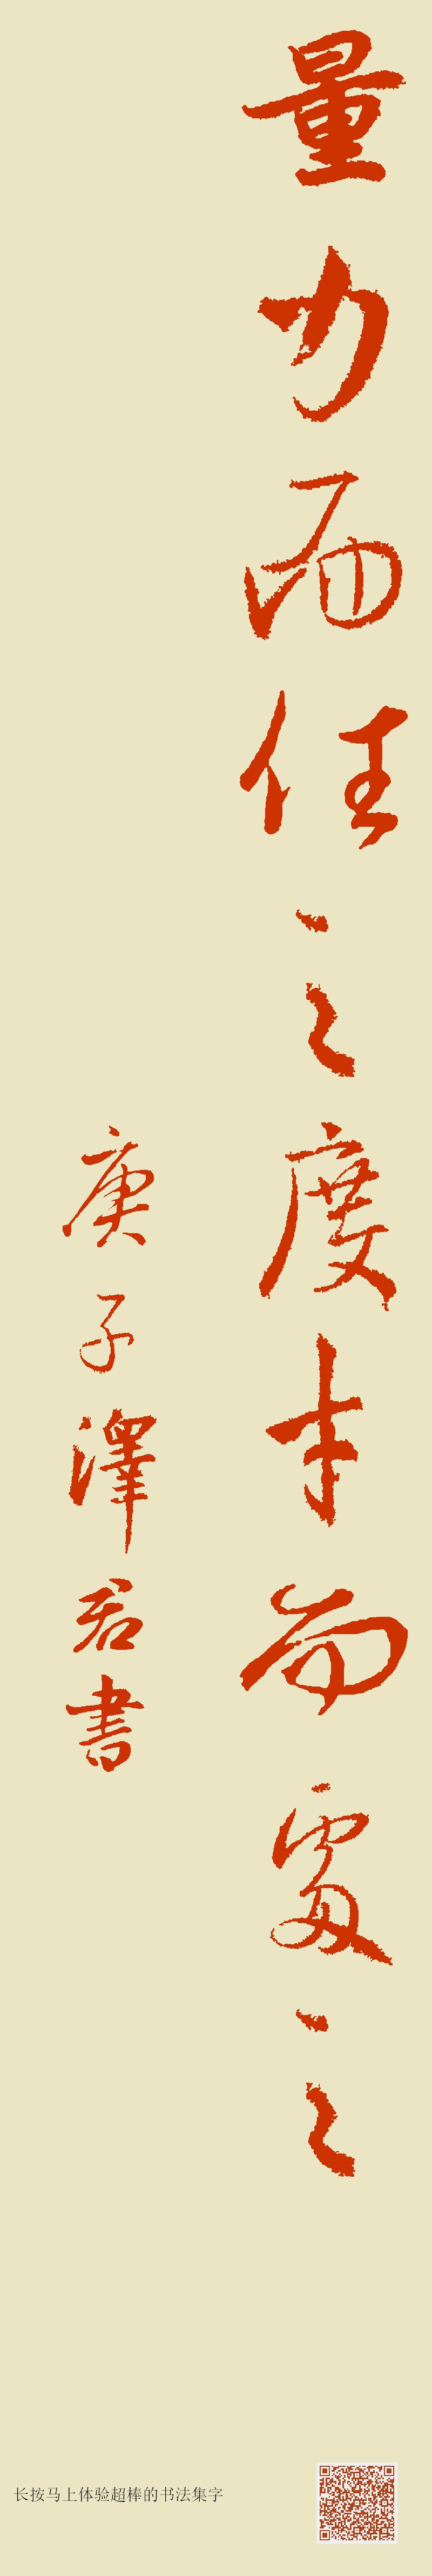 量力而任之度才而處之
庚子澤君書
长按马上体验超棒的书法集字